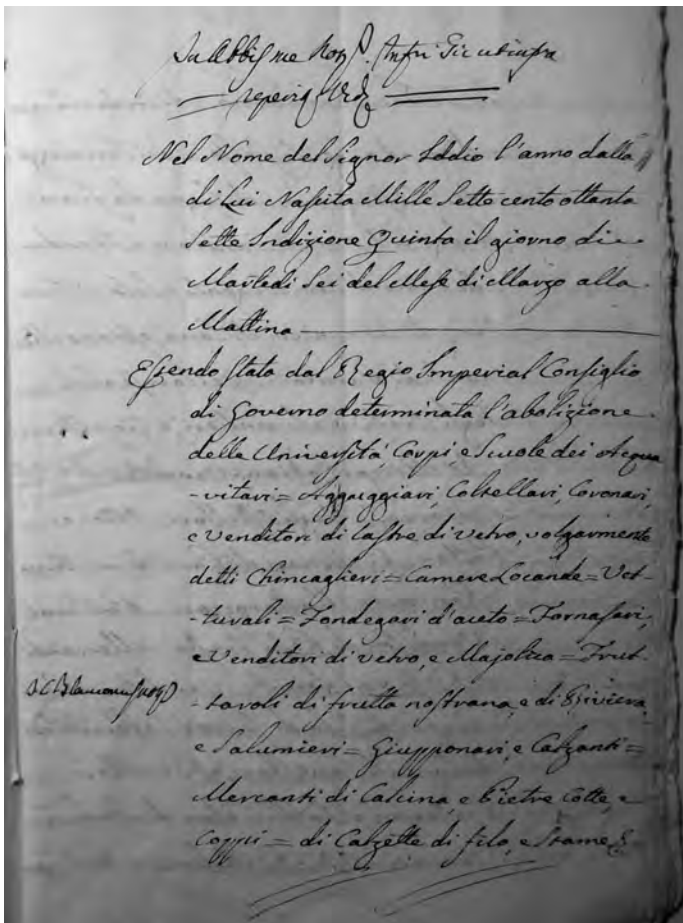 Nel Nome del Signor Iddio l'anno dalla
di Lui Nascita Mille Sette cento ottanta
Sette Indizione Quinta il giorno di
Martedi Sei del Mese di Marzo alla
Mattina
Essendo stata dal Regio Imperial Consiglio
di Governo determinata l'abolizione
delle Università, Corpi, e Scuole dei Acqua
-vitari = Aggueggiari, Coltellari, Coronari,
e Venditori di lastre di vetro, volgarmente
detti Chincaglieri = Camere Locande = Vet-
-turali = Fondegari d'aceto = Fornasari,
e Venditori di vetro, e Majolica = Frut-
-taroli di frutta nostrana, e di Riviera,
e Salumieri = Giupponari, e Calzanti =
Mercanti di Calcina, e Pietre Cotte, e
Coppi = di Calzette di filo, e Stame